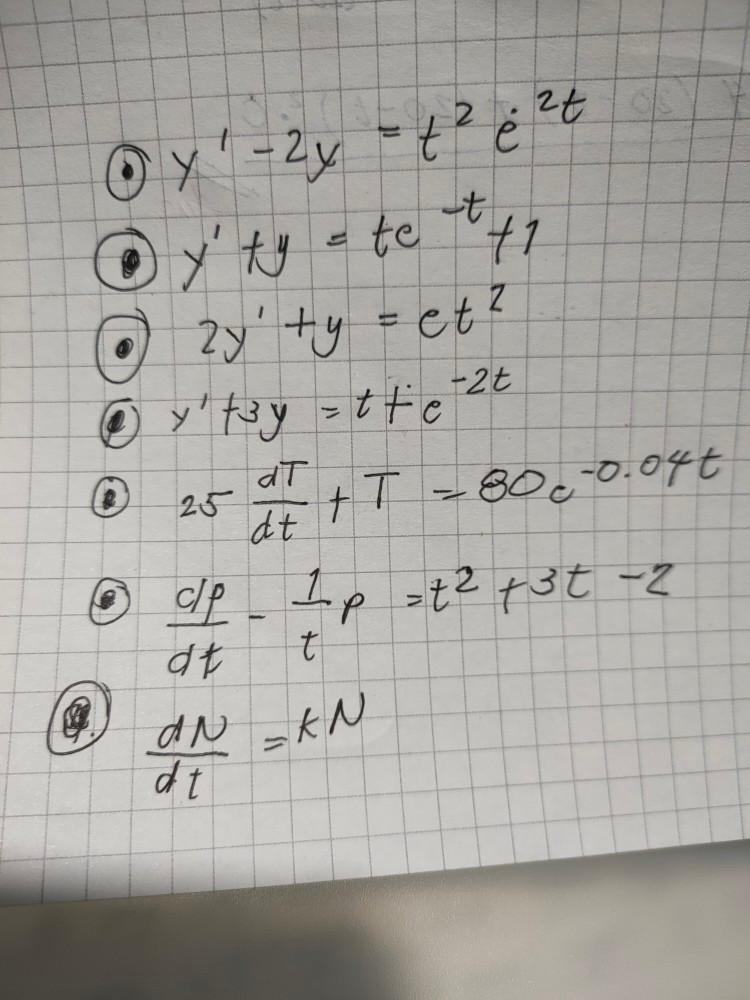 y' - 2y = t² e^2t
y' + y = te^-t + 1
2y' + y = et²
y' + 3y = t + e^-2t
25 dT/dt + T = 80e^-0.04t
dp/dt - 1/t p = t² + 3t - 2
dN/dt = kN